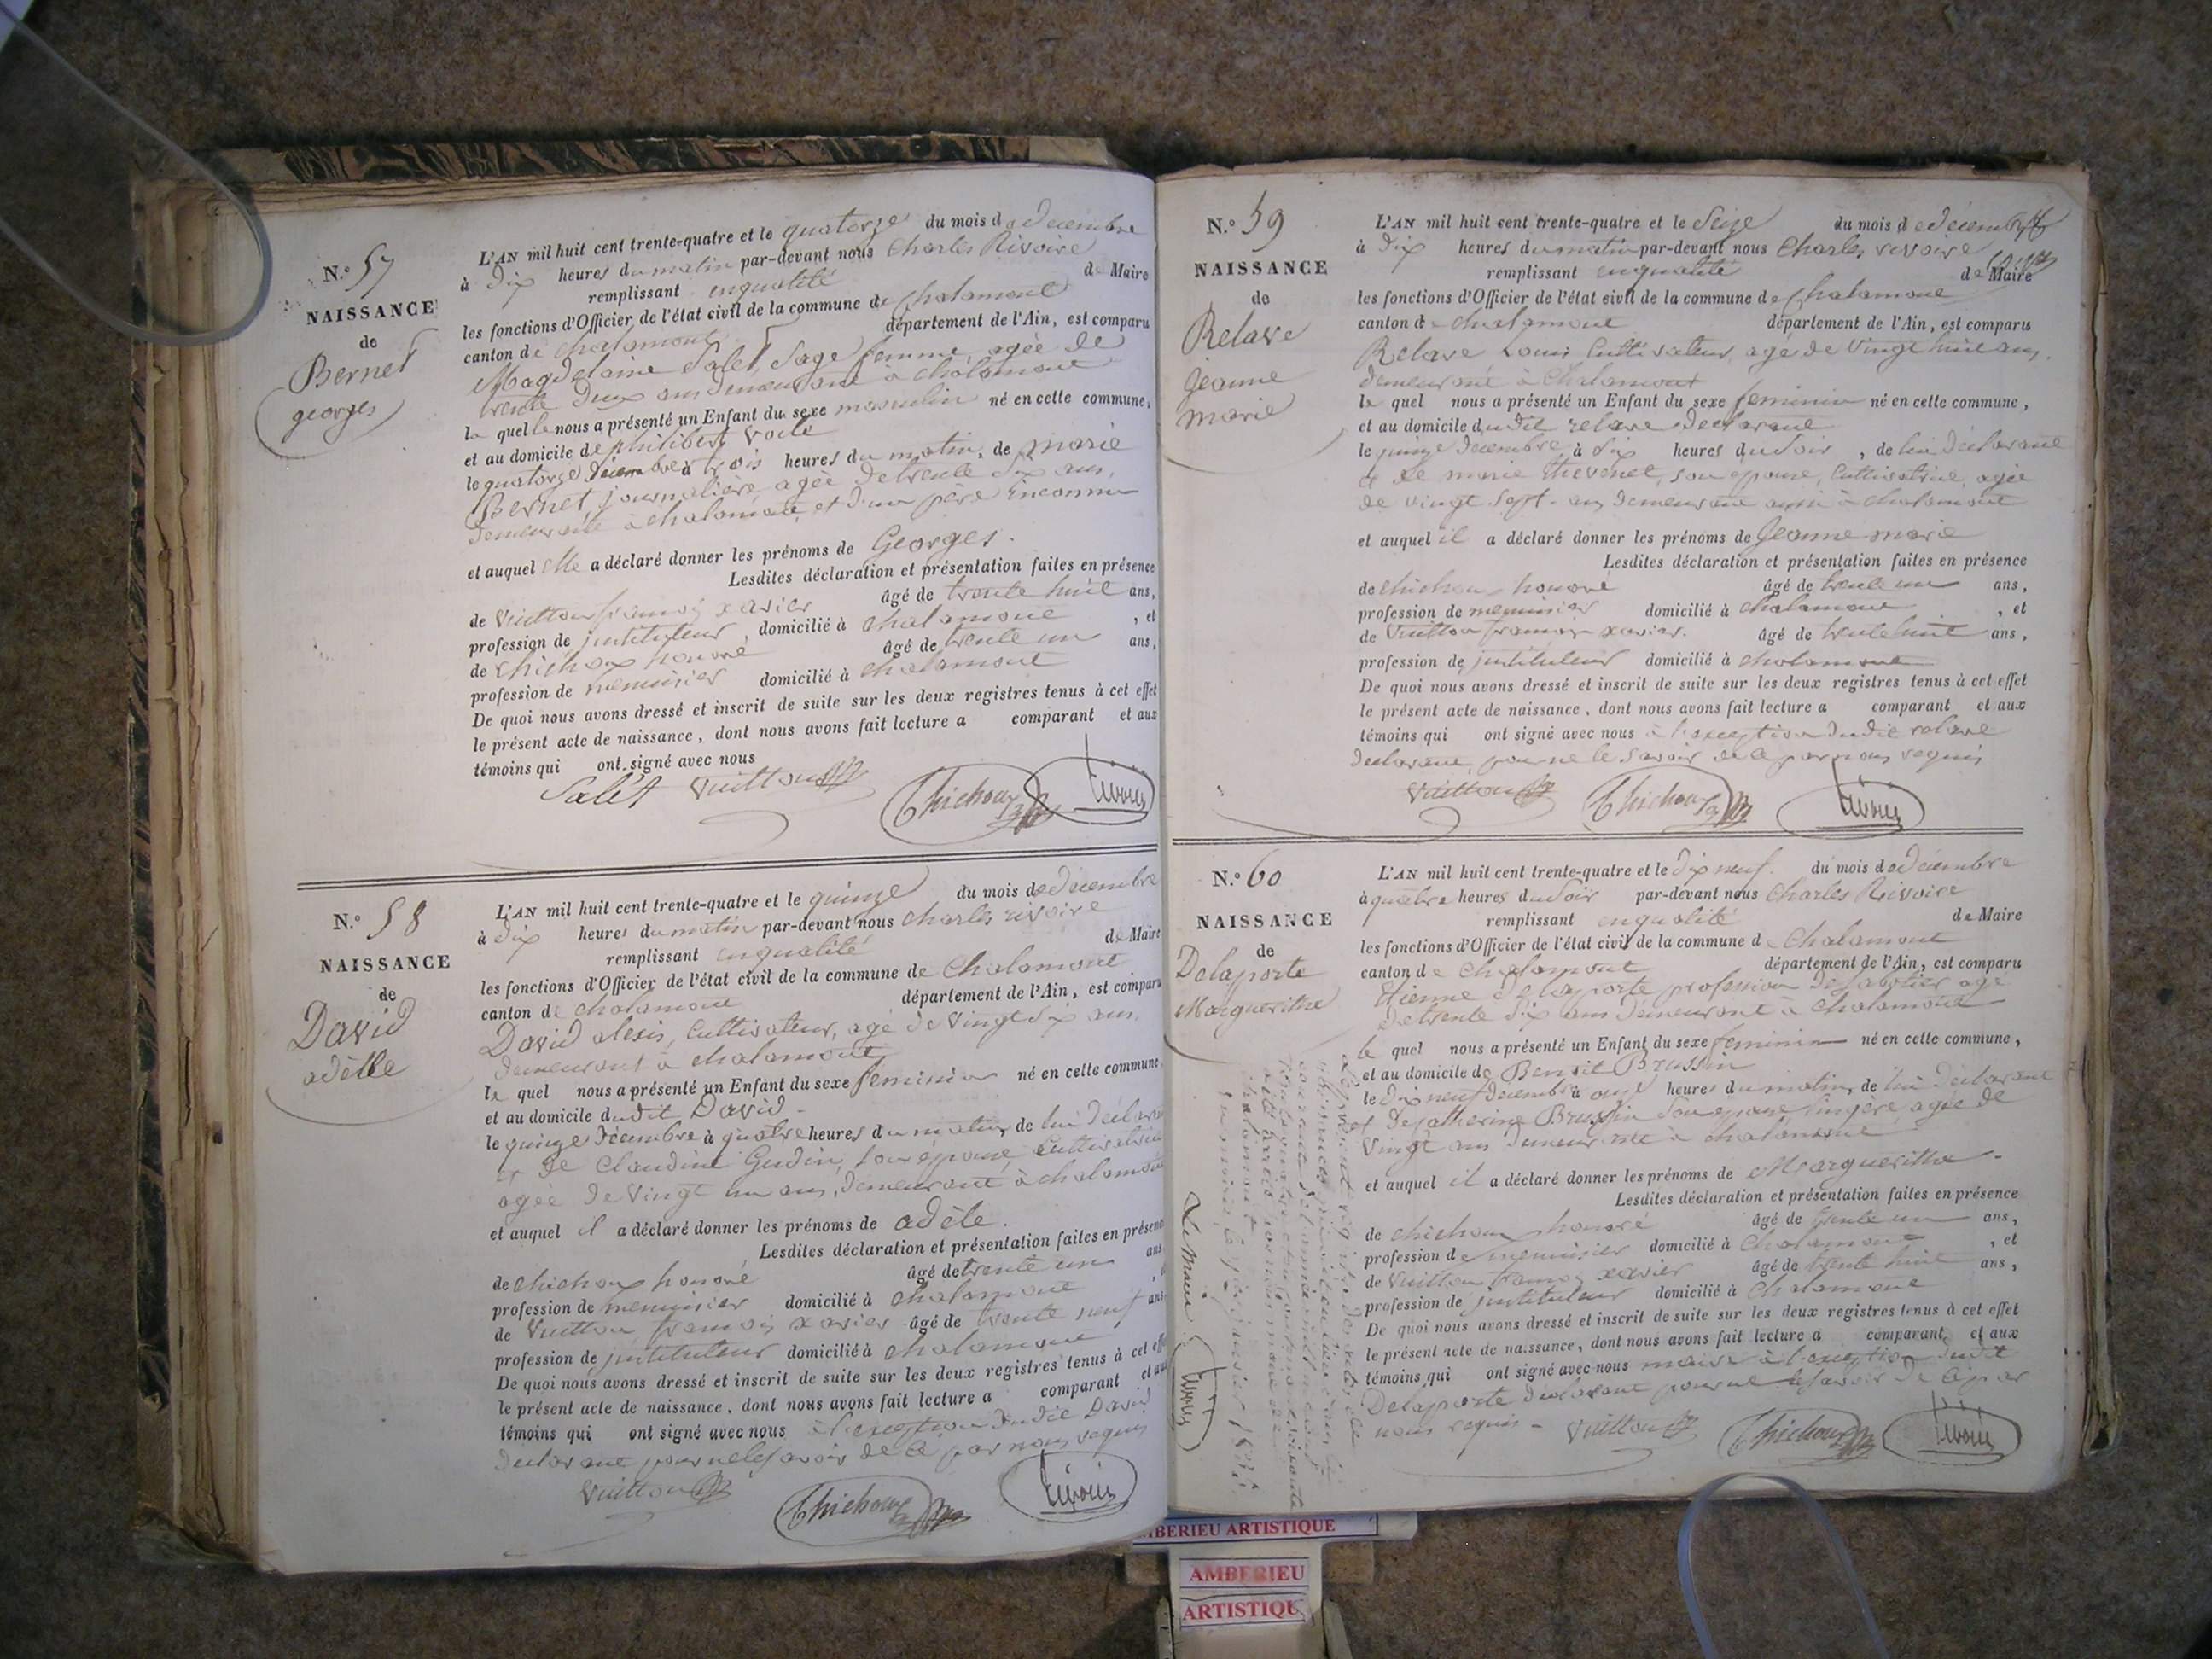 N.º 57
NAISSANCE
de
Bernet
georges
L'AN mil huit cent trente-quatre et le quatorze du mois de décembre
à dix heures du matin par-devant nous Charles Rivoire
remplissant en qualité de Maire
les fonctions d'Officier de l'état civil de la commune de chalamont
canton de chalamont département de l'Ain, est comparu
Magdelaine Salet, Sage femme, agée de
trente deux ans demeurant à chalamont
la quelle nous a présenté un Enfant du sexe masculin né en cette commune,
et au domicile de philibert
le quatorze décembre à trois heures du matin, de marie
Bernet, journalière, agée de trente six ans,
demeurante à chalamont, et d'un père inconnu
et auquel elle a déclaré donner les prénoms de Georges.
Lesdites déclaration et présentation faites en présence
de Vuitton françois xavier âgé de trente huit ans,
profession de instituteur, domicilié à chalamont, et
de Chichoux honoré âgé de trente un ans,
profession de menuisier domicilié à chalamont
De quoi nous avons dressé et inscrit de suite sur les deux registres tenus à cet effet
le présent acte de naissance, dont nous avons fait lecture a comparant et aux
témoins qui ont signé avec nous
Salet Vuitton Chichoux Rivoire
N.º 58
NAISSANCE
de
David
adèlle
L'AN mil huit cent trente-quatre et le quinze du mois de décembre
à dix heures du matin par-devant nous charles rivoire
remplissant en qualité de Maire
les fonctions d'Officier de l'état civil de la commune de Chalamont
canton de chalamont département de l'Ain, est comparu
David alexis, Cultivateur, agé de vingt six ans
demeurant à chalamont
le quel nous a présenté un Enfant du sexe féminin né en cette commune,
et au domicile dudit David
le quinze décembre à quatre heures du matin, de lui déclarant
et de Claudine Gudin, son épouse, Cultivatrice
agée de vingt un ans, demeurant à chalamont
et auquel il a déclaré donner les prénoms de adèle.
Lesdites déclaration et présentation faites en présence
de chichoux honoré âgé de trente un ans
profession de menuisier domicilié à chalamont
de Vuitton françois xavier âgé de trente neuf ans
profession de instituteur domicilié à chalamont
De quoi nous avons dressé et inscrit de suite sur les deux registres tenus à cet effet
le présent acte de naissance, dont nous avons fait lecture a comparant et aux
témoins qui ont signé avec nous à l'exception dudit David
déclarant pour ne le savoir de ce par nous requis
Vuitton Chichoux Rivoire
N.º 59
NAISSANCE
de
Relave
jeanne
marie
L'AN mil huit cent trente-quatre et le Seize du mois de décembre
à dix heures du matin par-devant nous Charles rivoire
remplissant en qualité de Maire
les fonctions d'Officier de l'état civil de la commune de chalamont
canton de chalamont département de l'Ain, est comparu
Relave Louis Cultivateur, agé de vingt huit ans,
demeurant à Chalamont
le quel nous a présenté un Enfant du sexe feminin né en cette commune,
et au domicile dudit relave déclarant
le quinze décembre à six heures du soir, de lui déclarant
et de marie thevenet, son épouse, Cultivatrice, agée
de vingt sept ans demeurant aussi à chalamont
et auquel il a déclaré donner les prénoms de Jeanne marie
Lesdites déclaration et présentation faites en présence
de chichoux honoré âgé de trente un ans,
profession de menuisier domicilié à chalamont, et
de Vuitton françois xavier. âgé de trente huit ans,
profession de instituteur domicilié à chalamont
De quoi nous avons dressé et inscrit de suite sur les deux registres tenus à cet effet
le présent acte de naissance, dont nous avons fait lecture a comparant et aux
témoins qui ont signé avec nous à l'exception dudit relave
déclarant, pour ne le savoir de ce par nous requis
Vuitton Chichoux Rivoire
N.º 60
NAISSANCE
de
Delaporte
Marguerithe
L'AN mil huit cent trente-quatre et le dix neuf du mois de décembre
à quatre heures du soir par-devant nous Charles Rivoire
remplissant en qualité de Maire
les fonctions d'Officier de l'état civil de la commune de Chalamont
canton de Chalamont département de l'Ain, est comparu
Etienne Delaporte profession de sabotier agé
de trente six ans demeurant à chalamont
le quel nous a présenté un Enfant du sexe feminin né en cette commune,
et au domicile de Benoit Brussin
le dix neuf décembre à onze heures du matin, de lui déclarant
et de catherine Brussin son épouse lingère agée de
vingt ans demeurant à chalamont
et auquel il a déclaré donner les prénoms de Marguerithe
Lesdites déclaration et présentation faites en présence
de chichoux honoré âgé de trente un ans,
profession de menuisier domicilié à Chalamont, et
de Vuitton françois xavier âgé de trente huit ans,
profession de instituteur domicilié à Chalamont
De quoi nous avons dressé et inscrit de suite sur les deux registres tenus à cet effet
le présent acte de naissance, dont nous avons fait lecture a comparant, et aux
témoins qui ont signé avec nous maire à l'exception dudit
Delaporte déclarant pour ne le savoir de ce par
nous requis - Vuitton Chichoux Rivoire
Le présent registre des actes de
Le Maire
Rivoire
AMBERIEU ARTISTIQUE
AMBERIEU
ARTISTIQUE